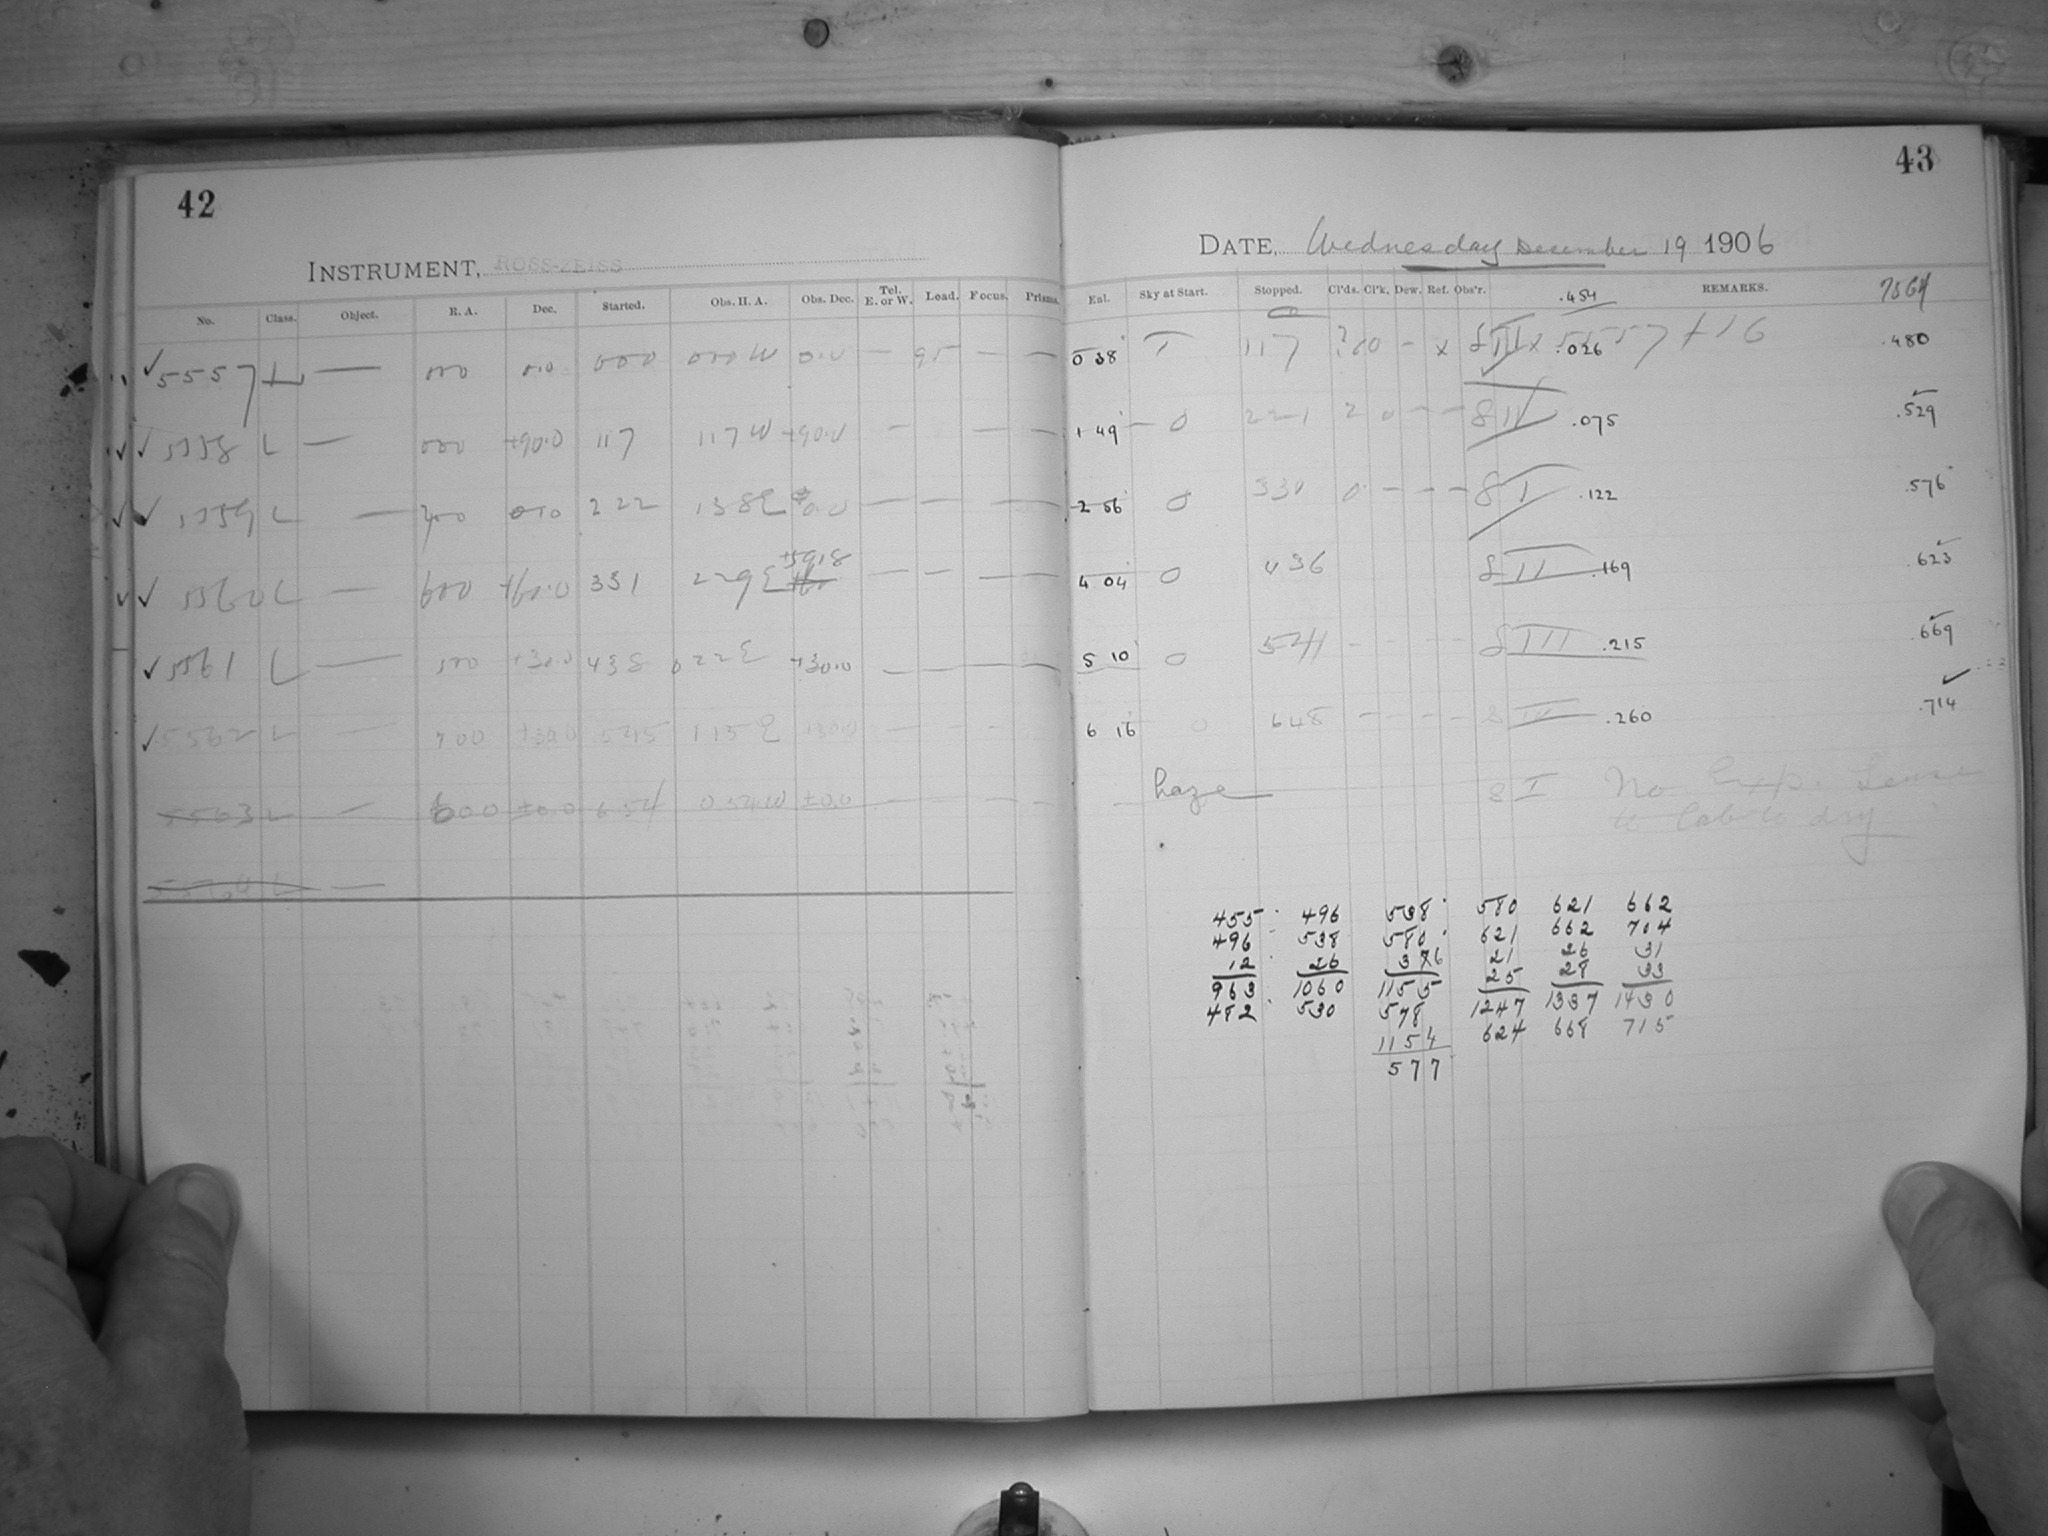 42
INSTRUMENT, ROSS-ZEISS
No. Class. Object. R. A. Dec. Started. Obs. H. A. Obs. Dec. Tel. E. or W. Load. Focus. Prisms.
✓ 5557 — 000 0.0 000 000 W 0.0 — 95 — —
✓ ✓ 5558 L — 000 +90.0 117 117 W +90.0 — — —
✓ ✓ 5559 L — 222 138 E 0.0 — — — —
✓ ✓ 5560 L — 600 331 229 E — — — —
✓ 5561 L — 500 +30.0 438 022 E +30.0 — — — —
✓ 5562 L — 700 +30.0 545 115 E +30.0 — — —
5563 L — 600 ±0.0 654 054 W ±0.0 — — —
43
DATE, Wednesday December 19 1906
Exl. Sky at Start. Stopped. Cl'ds. Cl'k. Dew. Ref. Obs'r. .454 REMARKS.
0 38 117 — x .026 5557 +16 .480
1 49 — 0 221 2 0 — — S II .075 .529
2 56 0 330 0 — — — S I .122 .576
4 04 0 436 S II .169 .623
5 10 0 541 — S III .215 .669
6 16 0 648 — — — — S III .260 .714
haze S I No Exp. Lense
to Cab to dry
455 496 538 580 621 662
496 538 580 621 662 704
12 26 21 26 31
25 28 33
963 1060 1155 1247 1337 1430
482 530 578 624 668 715
1154
577